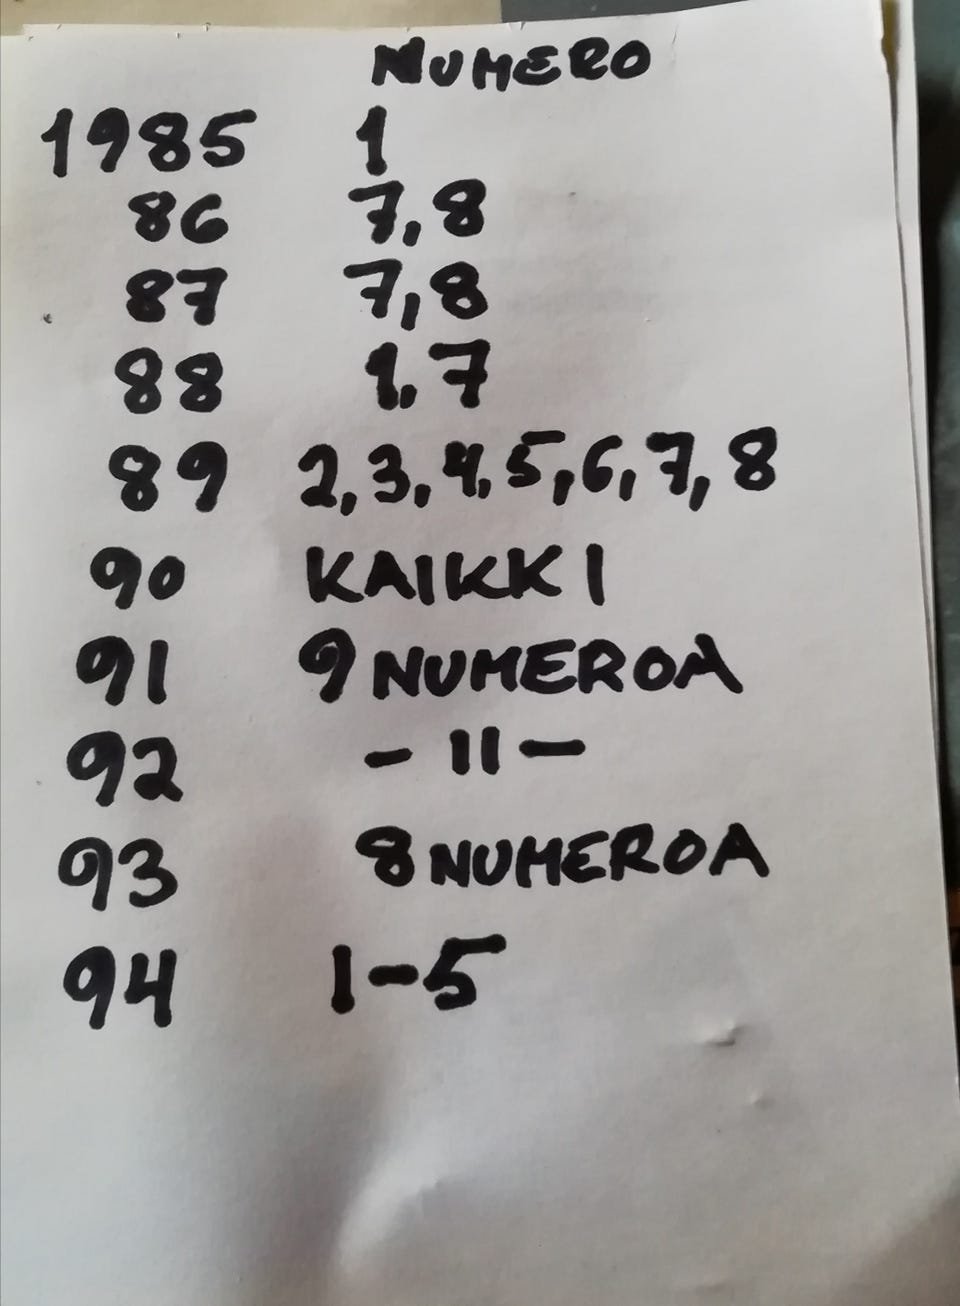 NUMERO
1985 1
86 7,8
87 7,8
88 1,7
89 2,3,4,5,6,7,8
90 KAIKKI
91 9 NUMEROA
92 -11-
93 8 NUMEROA
94 1-5